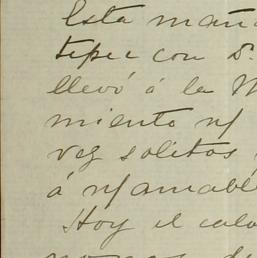 Esta mañ
tepec con D.
llevó á la M
miento n/
vez solitos
á n/ amabl
Hoy el calo